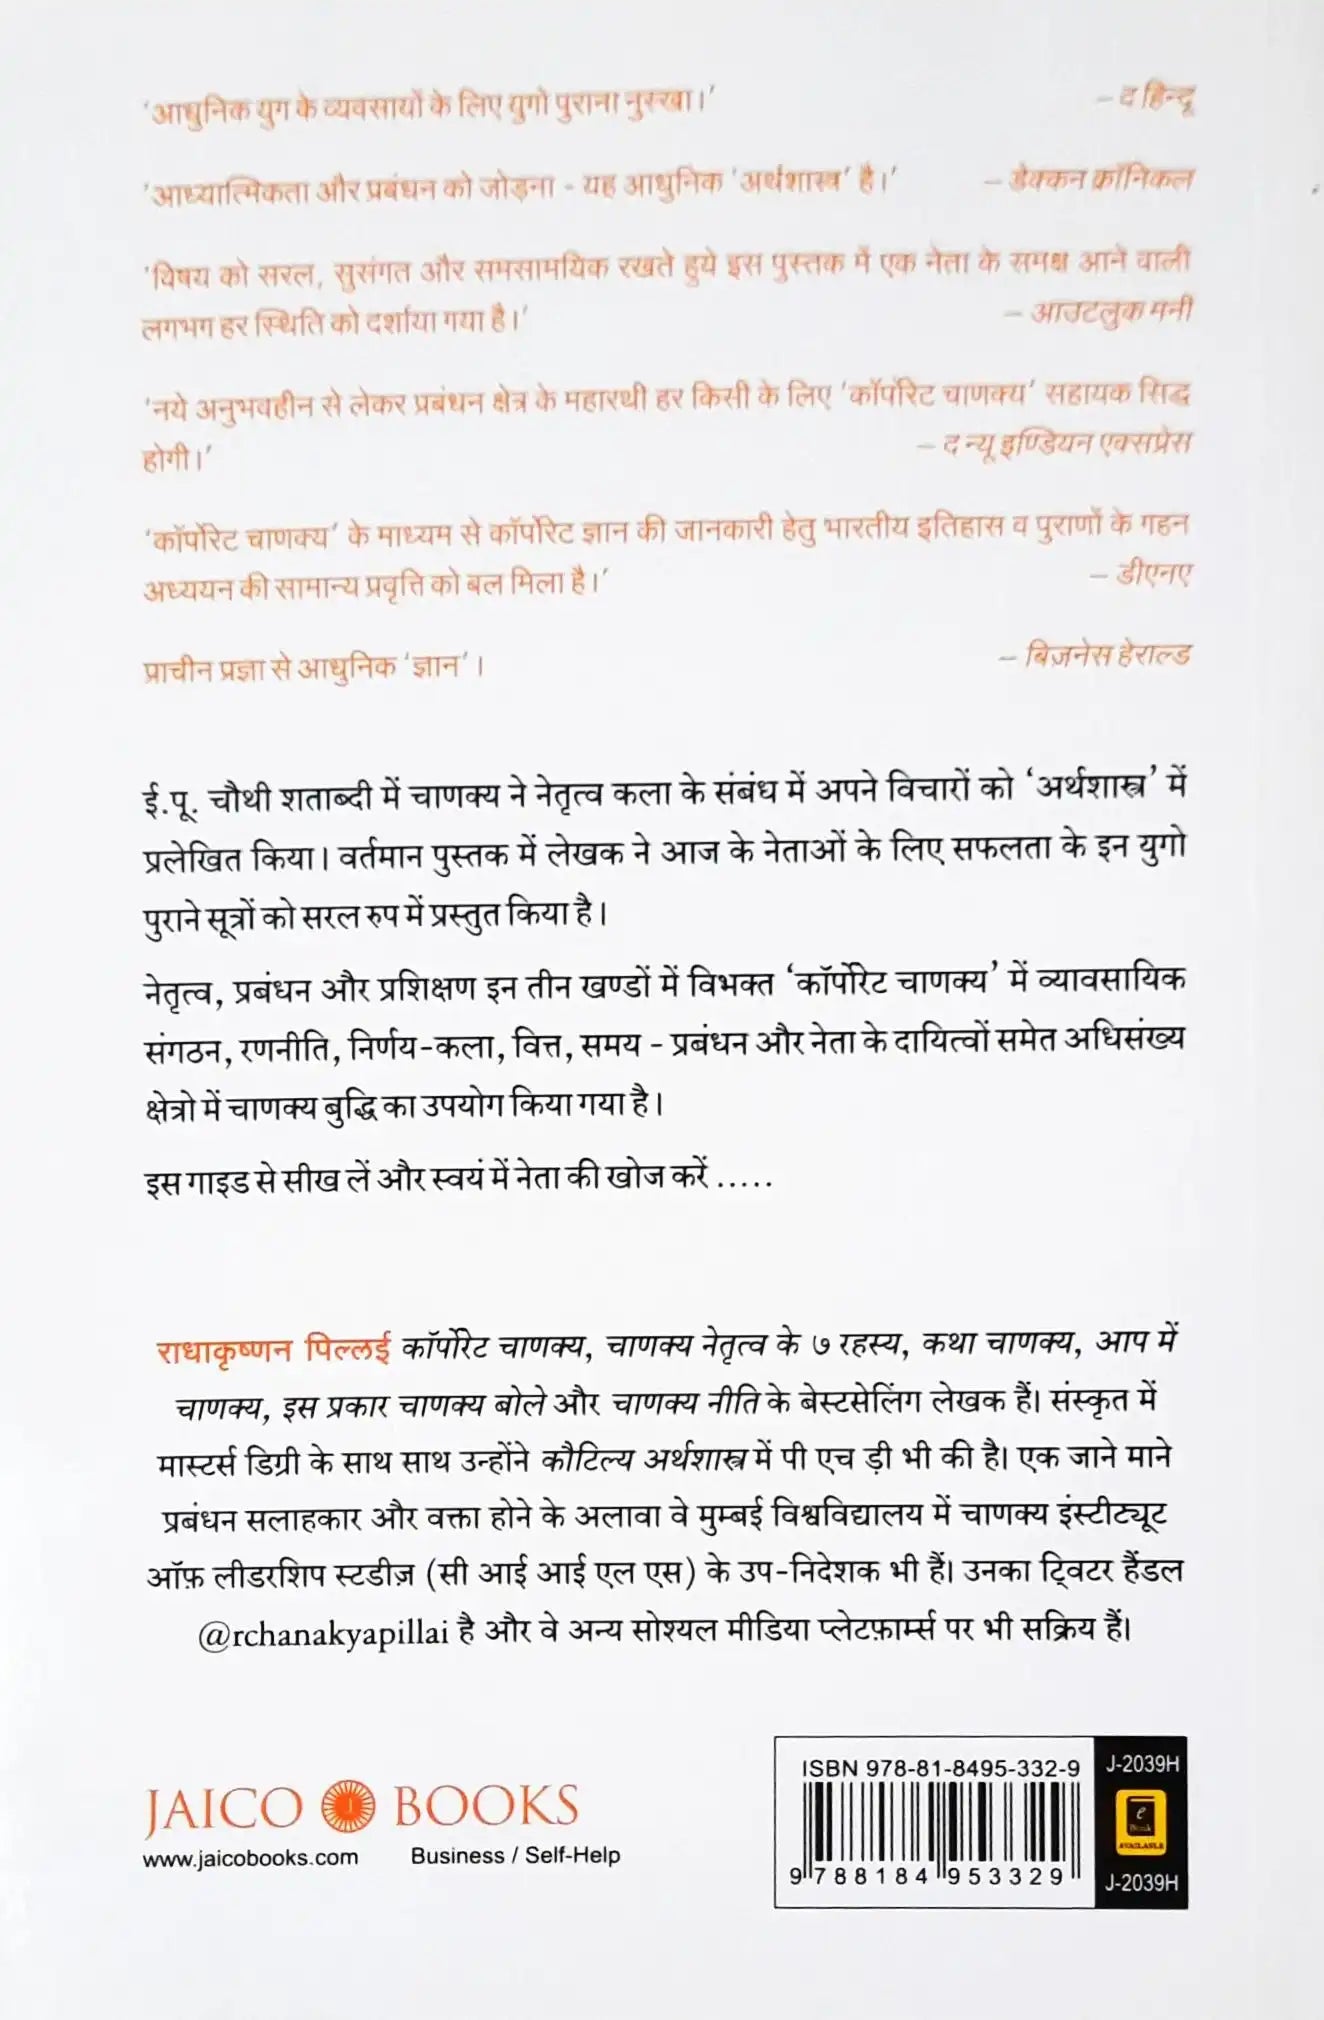 'आधुनिक युग के व्यवसायों के लिए युगो पुराना नुस्खा।' – द हिन्दू
'आध्यात्मिकता और प्रबंधन को जोड़ना - यह आधुनिक 'अर्थशास्त्र' है।' – डेक्कन क्रॉनिकल
'विषय को सरल, सुसंगत और समसामयिक रखते हुये इस पुस्तक में एक नेता के समक्ष आने वाली
लगभग हर स्थिति को दर्शाया गया है।' – आउटलुक मनी
'नये अनुभवहीन से लेकर प्रबंधन क्षेत्र के महारथी हर किसी के लिए 'कॉर्पोरेट चाणक्य' सहायक सिद्ध
होगी।' – द न्यू इण्डियन एक्सप्रेस
'कॉर्पोरेट चाणक्य' के माध्यम से कॉर्पोरेट ज्ञान की जानकारी हेतु भारतीय इतिहास व पुराणों के गहन
अध्ययन की सामान्य प्रवृत्ति को बल मिला है।' – डीएनए
प्राचीन प्रज्ञा से आधुनिक 'ज्ञान'। – बिज़नेस हेराल्ड
ई.पू. चौथी शताब्दी में चाणक्य ने नेतृत्व कला के संबंध में अपने विचारों को 'अर्थशास्त्र' में
प्रलेखित किया। वर्तमान पुस्तक में लेखक ने आज के नेताओं के लिए सफलता के इन युगो
पुराने सूत्रों को सरल रुप में प्रस्तुत किया है।
नेतृत्व, प्रबंधन और प्रशिक्षण इन तीन खण्डों में विभक्त 'कॉर्पोरेट चाणक्य' में व्यावसायिक
संगठन, रणनीति, निर्णय-कला, वित्त, समय - प्रबंधन और नेता के दायित्वों समेत अधिसंख्य
क्षेत्रो में चाणक्य बुद्धि का उपयोग किया गया है।
इस गाइड से सीख लें और स्वयं में नेता की खोज करें .....
राधाकृष्णन पिल्लई कॉर्पोरेट चाणक्य, चाणक्य नेतृत्व के ७ रहस्य, कथा चाणक्य, आप में
चाणक्य, इस प्रकार चाणक्य बोले और चाणक्य नीति के बेस्टसेलिंग लेखक हैं। संस्कृत में
मास्टर्स डिग्री के साथ साथ उन्होंने कौटिल्य अर्थशास्त्र में पी एच ड़ी भी की है। एक जाने माने
प्रबंधन सलाहकार और वक्ता होने के अलावा वे मुम्बई विश्वविद्यालय में चाणक्य इंस्टीट्यूट
ऑफ़ लीडरशिप स्टडीज़ (सी आई आई एल एस) के उप-निदेशक भी हैं। उनका ट्विटर हैंडल
@rchanakyapillai है और वे अन्य सोश्यल मीडिया प्लेटफ़ार्म्स पर भी सक्रिय हैं।
JAICO BOOKS
www.jaicobooks.com Business / Self-Help
ISBN 978-81-8495-332-9
9 788184 953329
J-2039H
e
Book
AVAILABLE
J-2039H